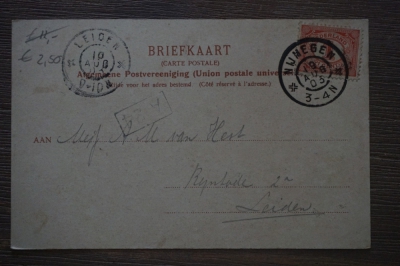 € 2,50
LEIDEN
10 AUG
9-10N
BRIEFKAART
(CARTE POSTALE)
Algemeene Postvereeniging (Union postale
Zijde voor het adres bestemd. (Côté réservé à l'adresse.)
NIJMEGEN
10 AUG 05
3-4N
AAN Mej. A. M. van Hest
2a
Leiden